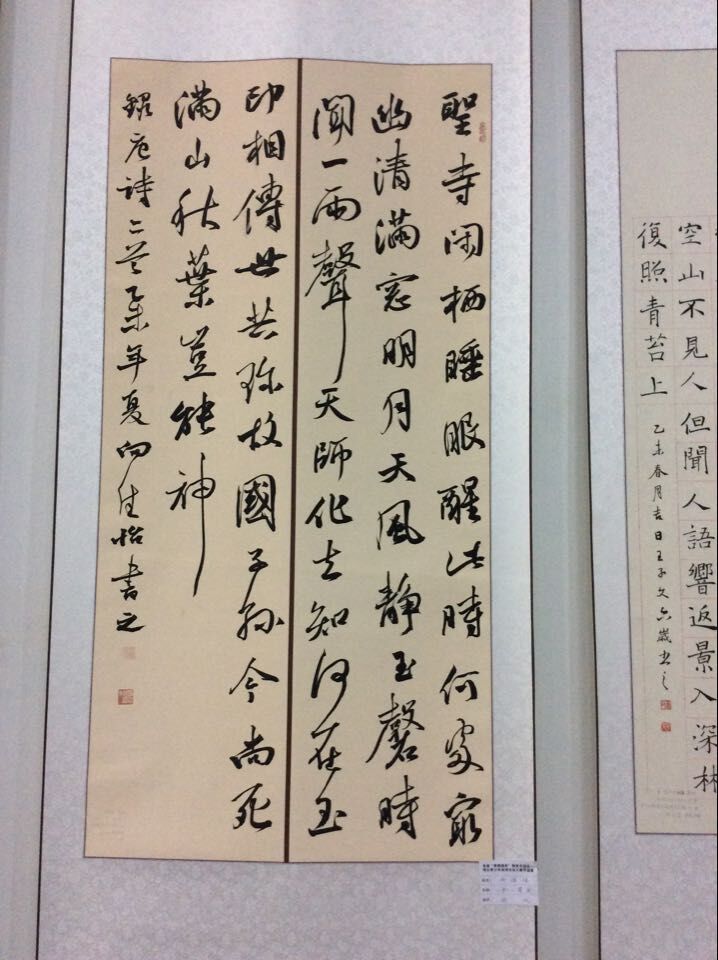 聖寺閑栖睡眼醒此時何處最
幽清滿窓明月天風靜玉磬時
聞一兩聲天師化去知何在玉
印相傳世共珍故國子孫今尚死
滿山秋葉豈能神
詩二首乙未年夏向佳怡書之
空山不見人但聞人語響返景入深林
復照青苔上
乙未春月吉日王子文六歲書之